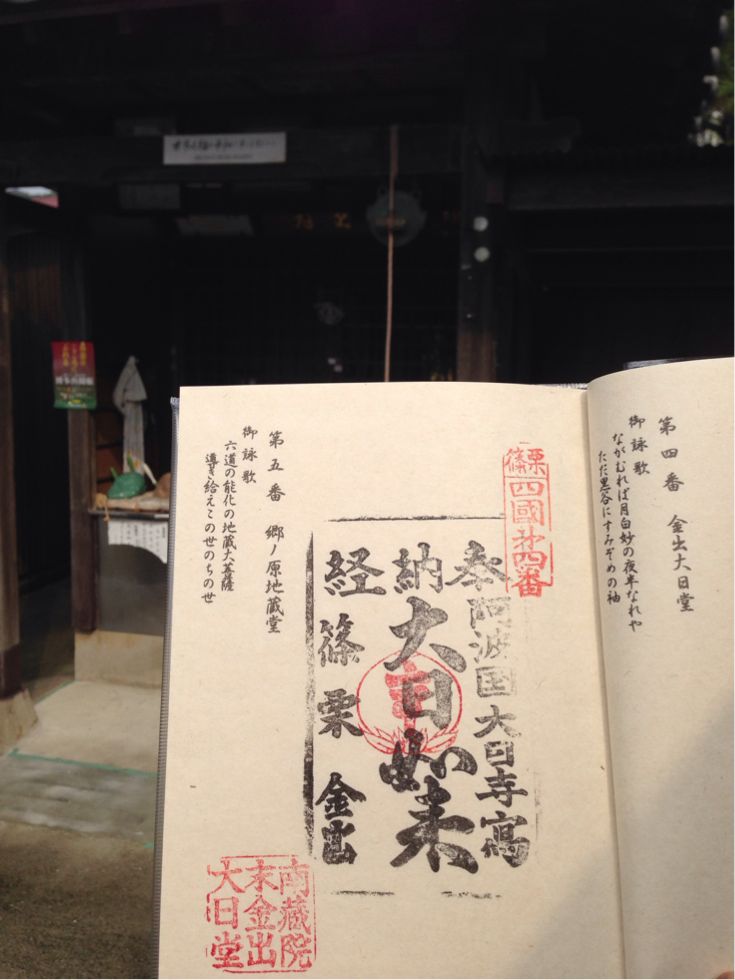 第四番　金出大日堂
御詠歌
ながむれば月白妙の夜半なれや
ただ黒谷にすみぞめの袖
篠栗
四國第四番
奉納経
阿波国大日寺寫
大日如来
篠栗金出
南蔵院
末金出
大日堂
第五番　郷ノ原地蔵堂
御詠歌
六道の能化の地蔵大菩薩
導き給えこの世のちの世